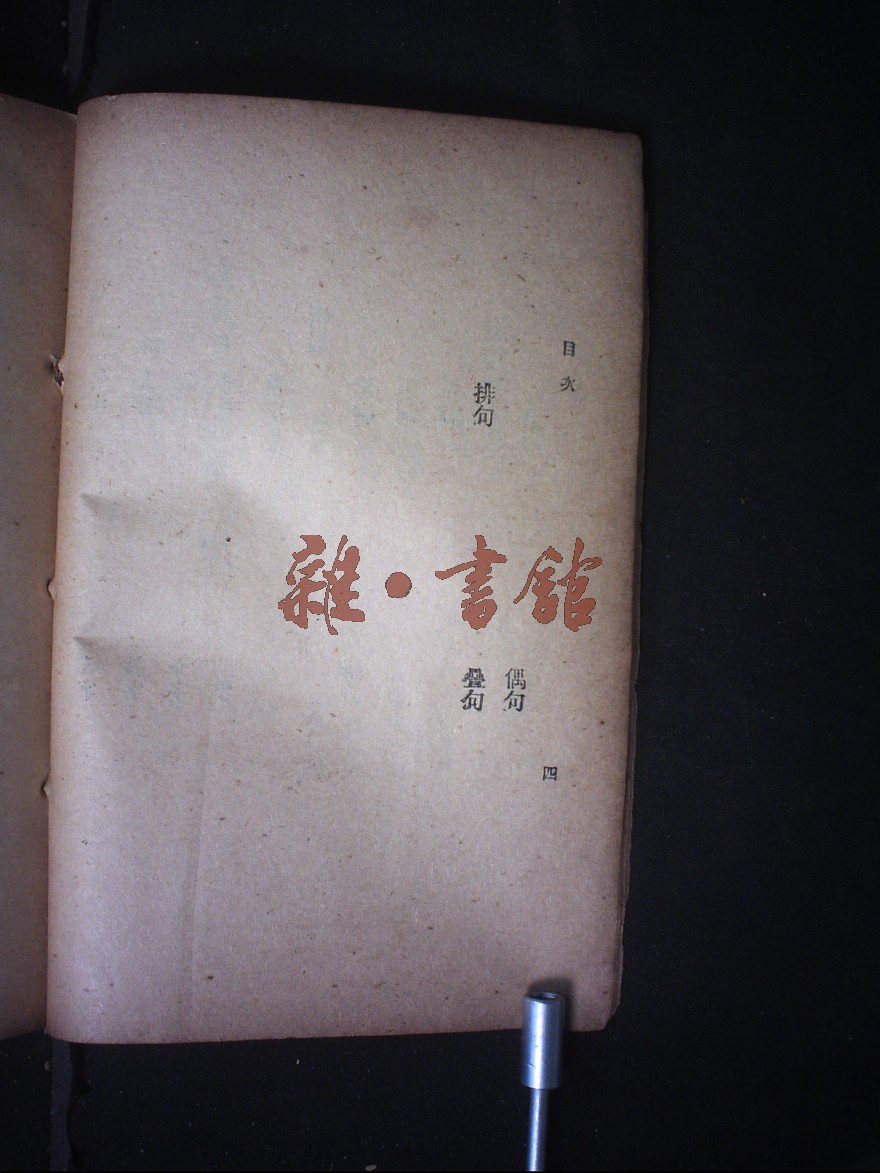 目次
偶句
排句
疊句
四
雜·書館